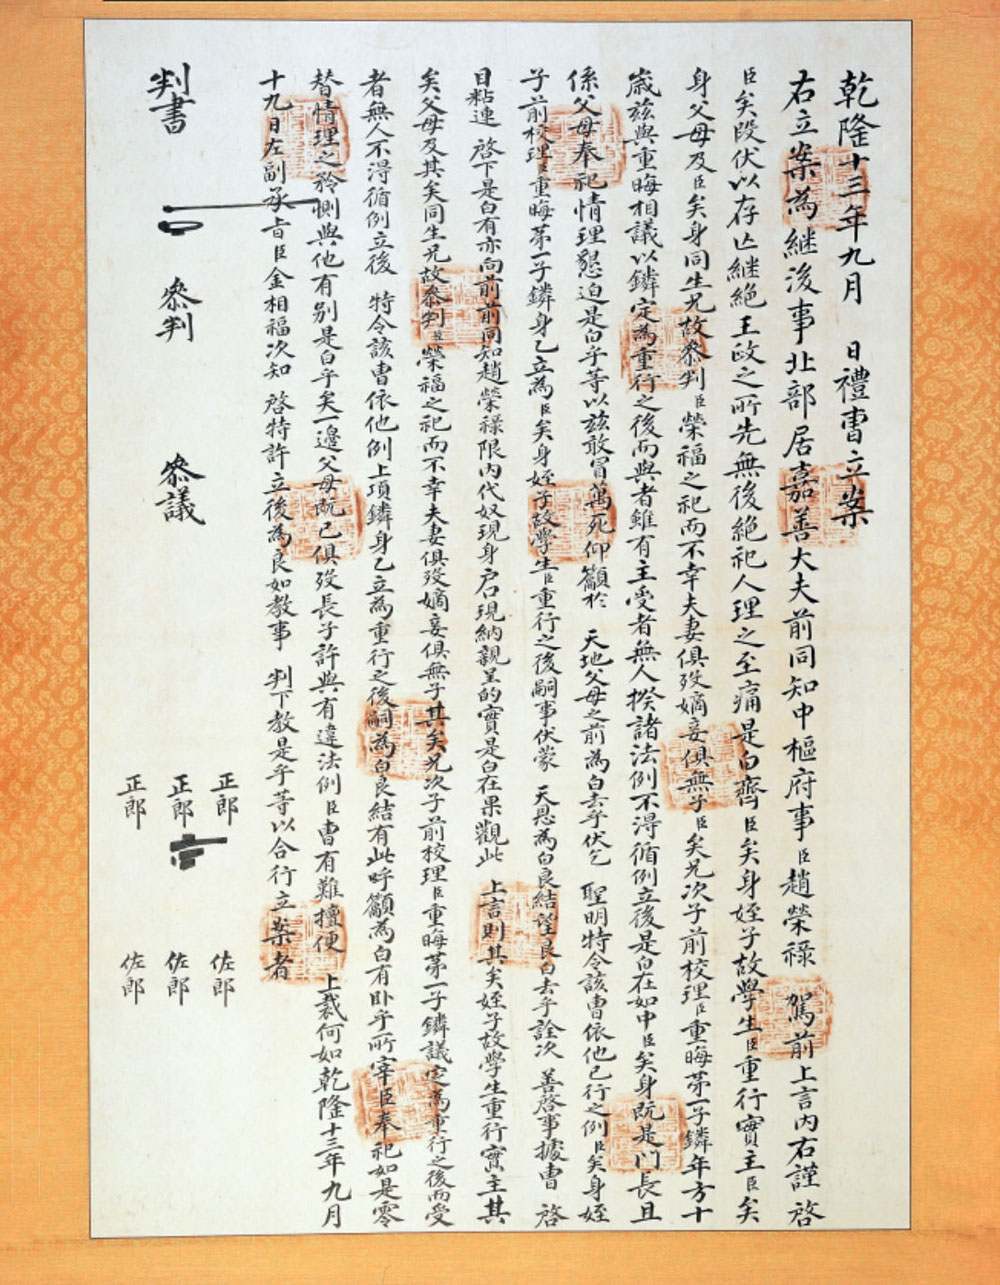 乾隆十三年九月 日禮曹立案
右立案為継後事北部居嘉善大夫前同知中樞府事臣趙榮祿 駕前上言內右謹 啓
臣矣段伏以存亡継絶王政之所先無後絶祀人理之至痛是白齊臣矣身姪子故學生臣重行實主臣矣
身父母及臣矣身同生兄故叅判臣榮福之祀而不幸夫妻俱歿嫡妾俱無子臣矣兄次子前校理臣重晦第一子鏻年方十
歲玆與重晦相議以鏻定為重行之後而與者雖有主受者無人揆諸法例不得循例立後是白在如中臣矣身旣是門長且
係父母奉祀情理懇迫是白乎等以玆敢冒萬死仰籲於 天地父母之前為白去乎伏乞 聖明特令該曹依他已行之例臣矣身姪
子前校理臣重晦第一子鏻身乙立為臣矣身姪子故學生臣重行之後嗣事伏蒙 天恩為白良結望良白去乎詮次 善啓事據曹 啓
目粘連 啓下是白有亦向前前同知趙榮祿限內代奴現身戶口現納親呈的實是白在果觀此 上言則其矣姪子故學生重行實主其
矣父母及其矣同生兄故叅判臣榮福之祀而不幸夫妻俱歿嫡妾俱無子其矣兄次子前校理臣重晦第一子鏻議定為重行之後而受
者無人不得循例立後 特令該曹依他例上項鏻身乙立為重行之後嗣為白良結有此呼籲為白有臥乎所宰臣奉祀如是零
替情理之矜惻與他有別是白乎矣一邊父母旣已俱歿長子許與有違法例臣曹有難擅便 上裁何如乾隆十三年九月
十九日左副承旨臣金相福次知 啓特許立後為良如敎事 判下敎是乎等以合行立案者
判書 叅判 叅議
正郎 正郎 正郎
佐郎 佐郎 佐郎